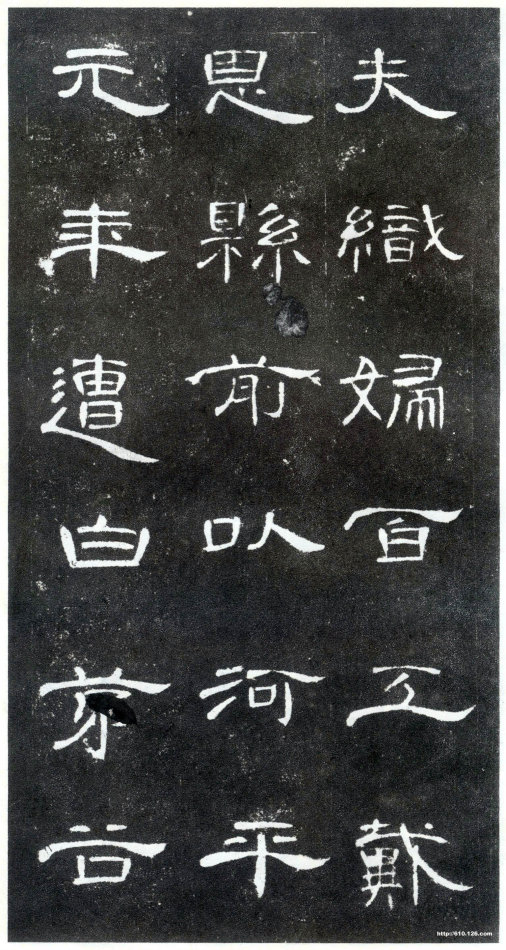 夫織婦百工戴
恩縣前以河平
元年遭白茅谷
http://610.126.com